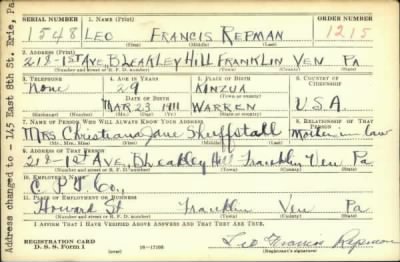 SERIAL NUMBER 1. NAME (Print) ORDER NUMBER
1548 LEO FRANCIS REPMAN 1215
(First) (Middle) (Last)
2. ADDRESS (Print)
218-1ST AVE, BLEAKLEY HILL FRANKLIN VEN PA
(Number and street or R. F. D. number) (Town) (County) (State)
3. TELEPHONE 4. AGE IN YEARS 5. PLACE OF BIRTH 6. COUNTRY OF CITIZENSHIP
None 29 KINZUA
DATE OF BIRTH (Town or county)
MAR 23 1911 WARREN U.S.A.
(Mo.) (Day) (Yr.) (State or country)
7. NAME OF PERSON WHO WILL ALWAYS KNOW YOUR ADDRESS 8. RELATIONSHIP OF THAT PERSON
Mrs Christiana Jane Sheffstall Mother in law
(Mr., Mrs., Miss) (First) (Middle) (Last)
9. ADDRESS OF THAT PERSON
218-1st Ave, Bleakley Hill Franklin Ven Pa
(Number and street or R. F. D. number) (Town) (County) (State)
10. EMPLOYER'S NAME
C. P. T. Co.,
11. PLACE OF EMPLOYMENT OR BUSINESS
Howard St Franklin Ven Pa
(Number and street or R. F. D. number) (Town) (County) (State)
I AFFIRM THAT I HAVE VERIFIED ABOVE ANSWERS AND THAT THEY ARE TRUE.
REGISTRATION CARD
D. S. S. Form 1 16-17105 Leo Francis Repman
(Registrant's signature)
Address changed to - 142 East 8th St. Erie, Pa.